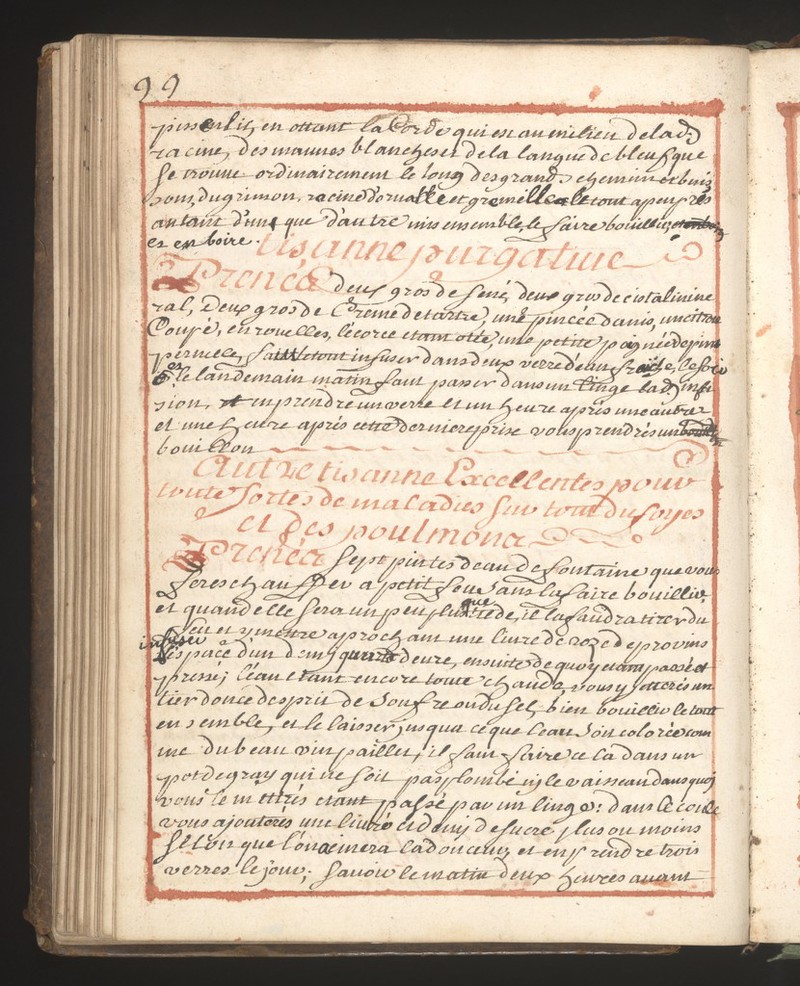 99
pissenlit, en ottant la Corde qui est au milieu de lad.
racine, des mauves blanches et de la langue de bleuf que
se trouve ordinairement le long des grands chemin et buis
sons, du
autant d'une que d'autre mis ensemble, le faire bouillir
et en boire.
tisanne purgative
Prenés deux gros de sené, deux gros de
ral, deux gros de Creme de tartre, une pincée d'anis, un citron
Coupé, en rouelles, l'écorce etant otée, une petite poignée de pim
pernelle, faitte tout infuser dans deux verre d'eau fraiche, le soir
et le landemain matin faut passer dans un linge lad. infu
sion, et en prendre un verre et un heure aprés une autre
et une heure aprés cette derniere prise vous prendrés un
bouillon
Autre tisanne Excellentes pour
toute sortes de maladies sur tout du foyes
et des poulmons
Prenéz sept pintes d'eau de fontaine que vous
feres chauffer a petit feu sans la faire bouillir,
et quand elle sera un peu plus que tiede, il la faudra tirer du
feu et y mettre a prochant une livre de roze de provins
infuser
l'espace d'un demy quart d'eure, ensuite de quoy etant passé et
pressé; l'eau etant encore toute chaude, vous y jetterés un
tier d'once d'esprit de soufre ou du sel, bien bouillir le tout
ensemble, et le laisser jusqua ce que l'eau soit colorée com
me du beau vin paillet, il faut faire ce la dans un
pot de gray qui ne soit pas plombé ny le vaisseau dans quoy
vous le mettrés etant passé par un linge: dans le coulé
vous ajouterés une livre et demy de sucre plus ou moins
selon que l'on aimera la douceur, et en prendre trois
verres le jour; savoir le matin deux heures avant